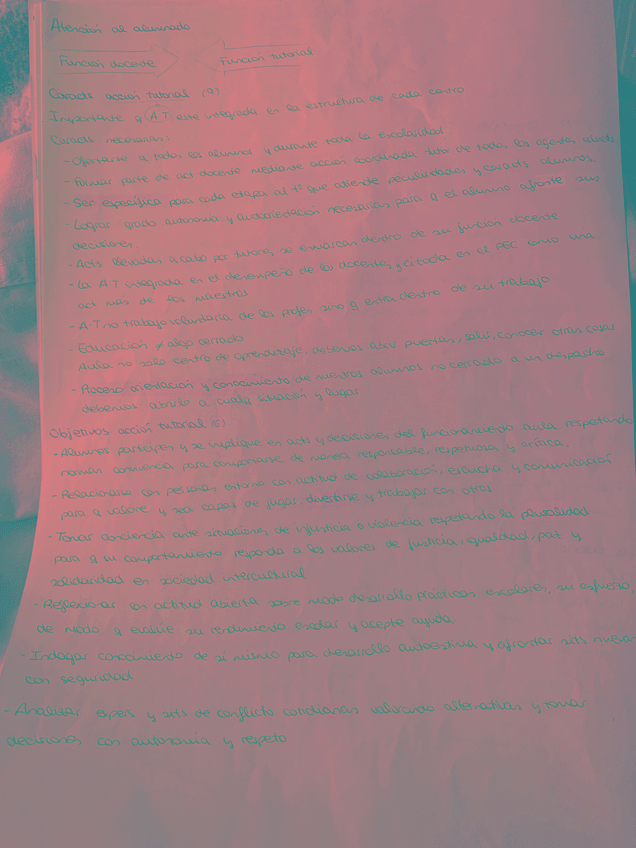 Atención al alumnado
Función docente Función tutorial
Caracts acción tutorial (9)
Importante q A.T. esté integrada en la estructura de cada centro
Caracts necesarias:
- Ofertarse a todos los alumnos y durante toda la escolaridad
- Formar parte de act docente mediante acción coordinada tutor de todos los agentes
- Ser específica para cada etapa al = que atiende peculiaridades y caracts alumnos.
- Lograr grado autonomía y autoorientación necesarias para q el alumno afronte sus
decisiones.
- Acts llevadas a cabo por tutores, se enmarcan dentro de su función docente
- La A.T integrada en el desempeño de los docentes, y citada en el PEC como una
act más de los maestros
- A.T no trabajo voluntaria de los profes sino q entra dentro de su trabajo
- Educación ≠ algo cerrado
Aula no solo centro de aprendizaje, debemos abrir puertas, salir, conocer otras cosas
- Proceso orientación y conocimiento de nuestros alumnos no cerrado a un despacho
debemos abrirlo a cualq situación y lugar
Objetivos acción tutorial (6)
- Alumnos participen y se implique en acts y decisiones del funcionamiento aula respetando
normas convivencia para comportarse de manera responsable, respetuosa y crítica.
- Relacionarse con personas entorno con actitud de colaboración, escucha y comunicación
para q valore y sea capaz de jugar, divertirse y trabajar con otros
- Tomar conciencia ante situaciones de injusticia o violencia respetando la pluralidad
para q su comportamiento responda a los valores de justicia, igualdad, paz y
solidaridad en sociedad intercultural
- Reflexionar con actitud abierta sobre modo desarrollo prácticas escolares, su esfuerzo,
de modo q evalúe su rendimiento escolar y acepte ayuda.
- Indagar conocimiento de sí mismo para desarrollo autoestima y afrontar sits nuevas
con seguridad
- Analizar expers y sits de conflicto cotidianas valorando alternativas y tomar
decisiones con autonomía y respeto